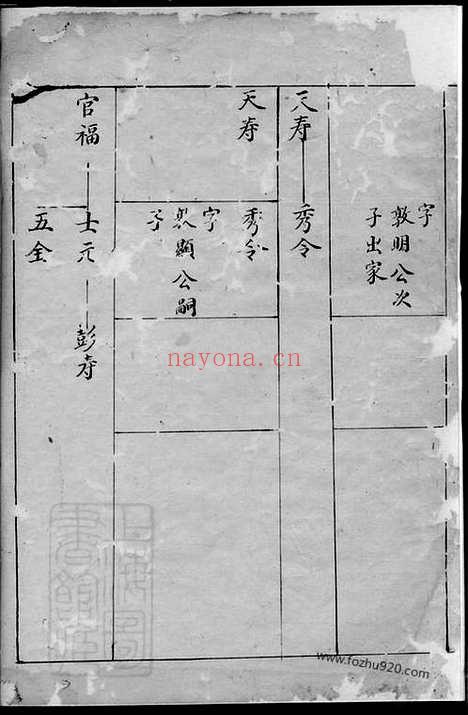 字
敦明公次
子出家
天寿 秀令
天寿 秀令
字
顯公嗣
子
官福 士元 彭寿
五全
nayona.cn
www.fozhu920.com